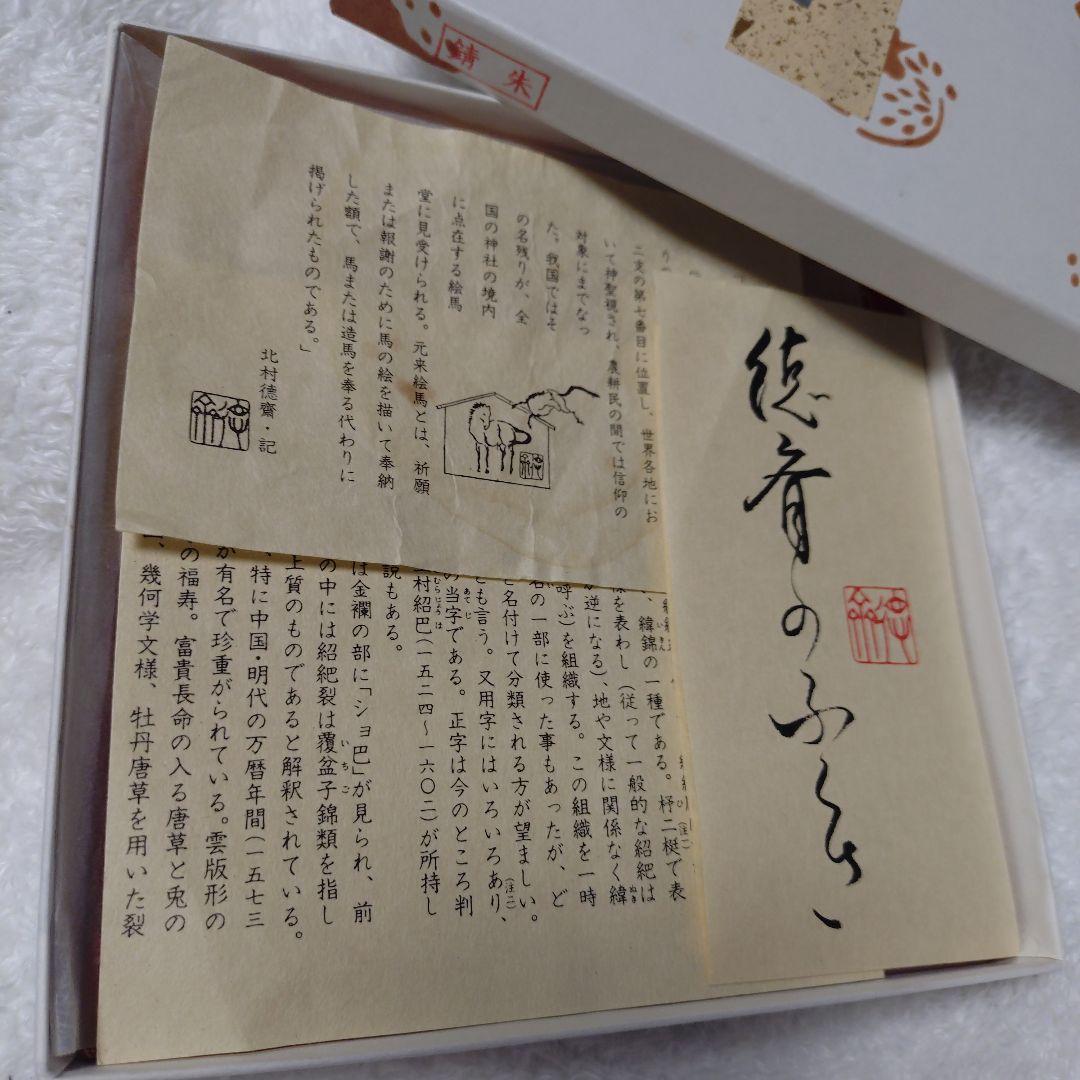 錆朱
二支の第七番目に位置し、世界各地にお
いて神聖視され、農耕民の間では信仰の
対象にまでなっ
た。我国ではそ
の名残りが、全
国の神社の境内
に点在する絵馬
堂に見受けられる。元来絵馬とは、祈願
または報謝のために馬の絵を描いて奉納
した額で、馬または造馬を奉る代わりに
掲げられたものである。」
北村徳齋・記
徳斎のふくさ
徳斎
緯錦の一種である。杼二梃で表
を表わし（従って一般的な紹紦は
逆になる）、地や文様に関係なく緯
呼ぶ）を組織する。この組織を一時
名の一部に使った事もあったが、ど
と名付けて分類される方が望ましい。
も言う。又用字にはいろいろあり、(注二)
の当字である。正字は今のところ判
村紹巴（一五二四〜一六〇二）が所持し
説もある。
は金襴の部に「ショ巴」が見られ、前
の中には紹紦裂は覆盆子錦類を指し
上質のものであると解釈されている。
特に中国・明代の万暦年間（一五七三
が有名で珍重がられている。雲版形の
の福寿。富貴長命の入る唐草と兎の
幾何学文様、牡丹唐草を用いた裂